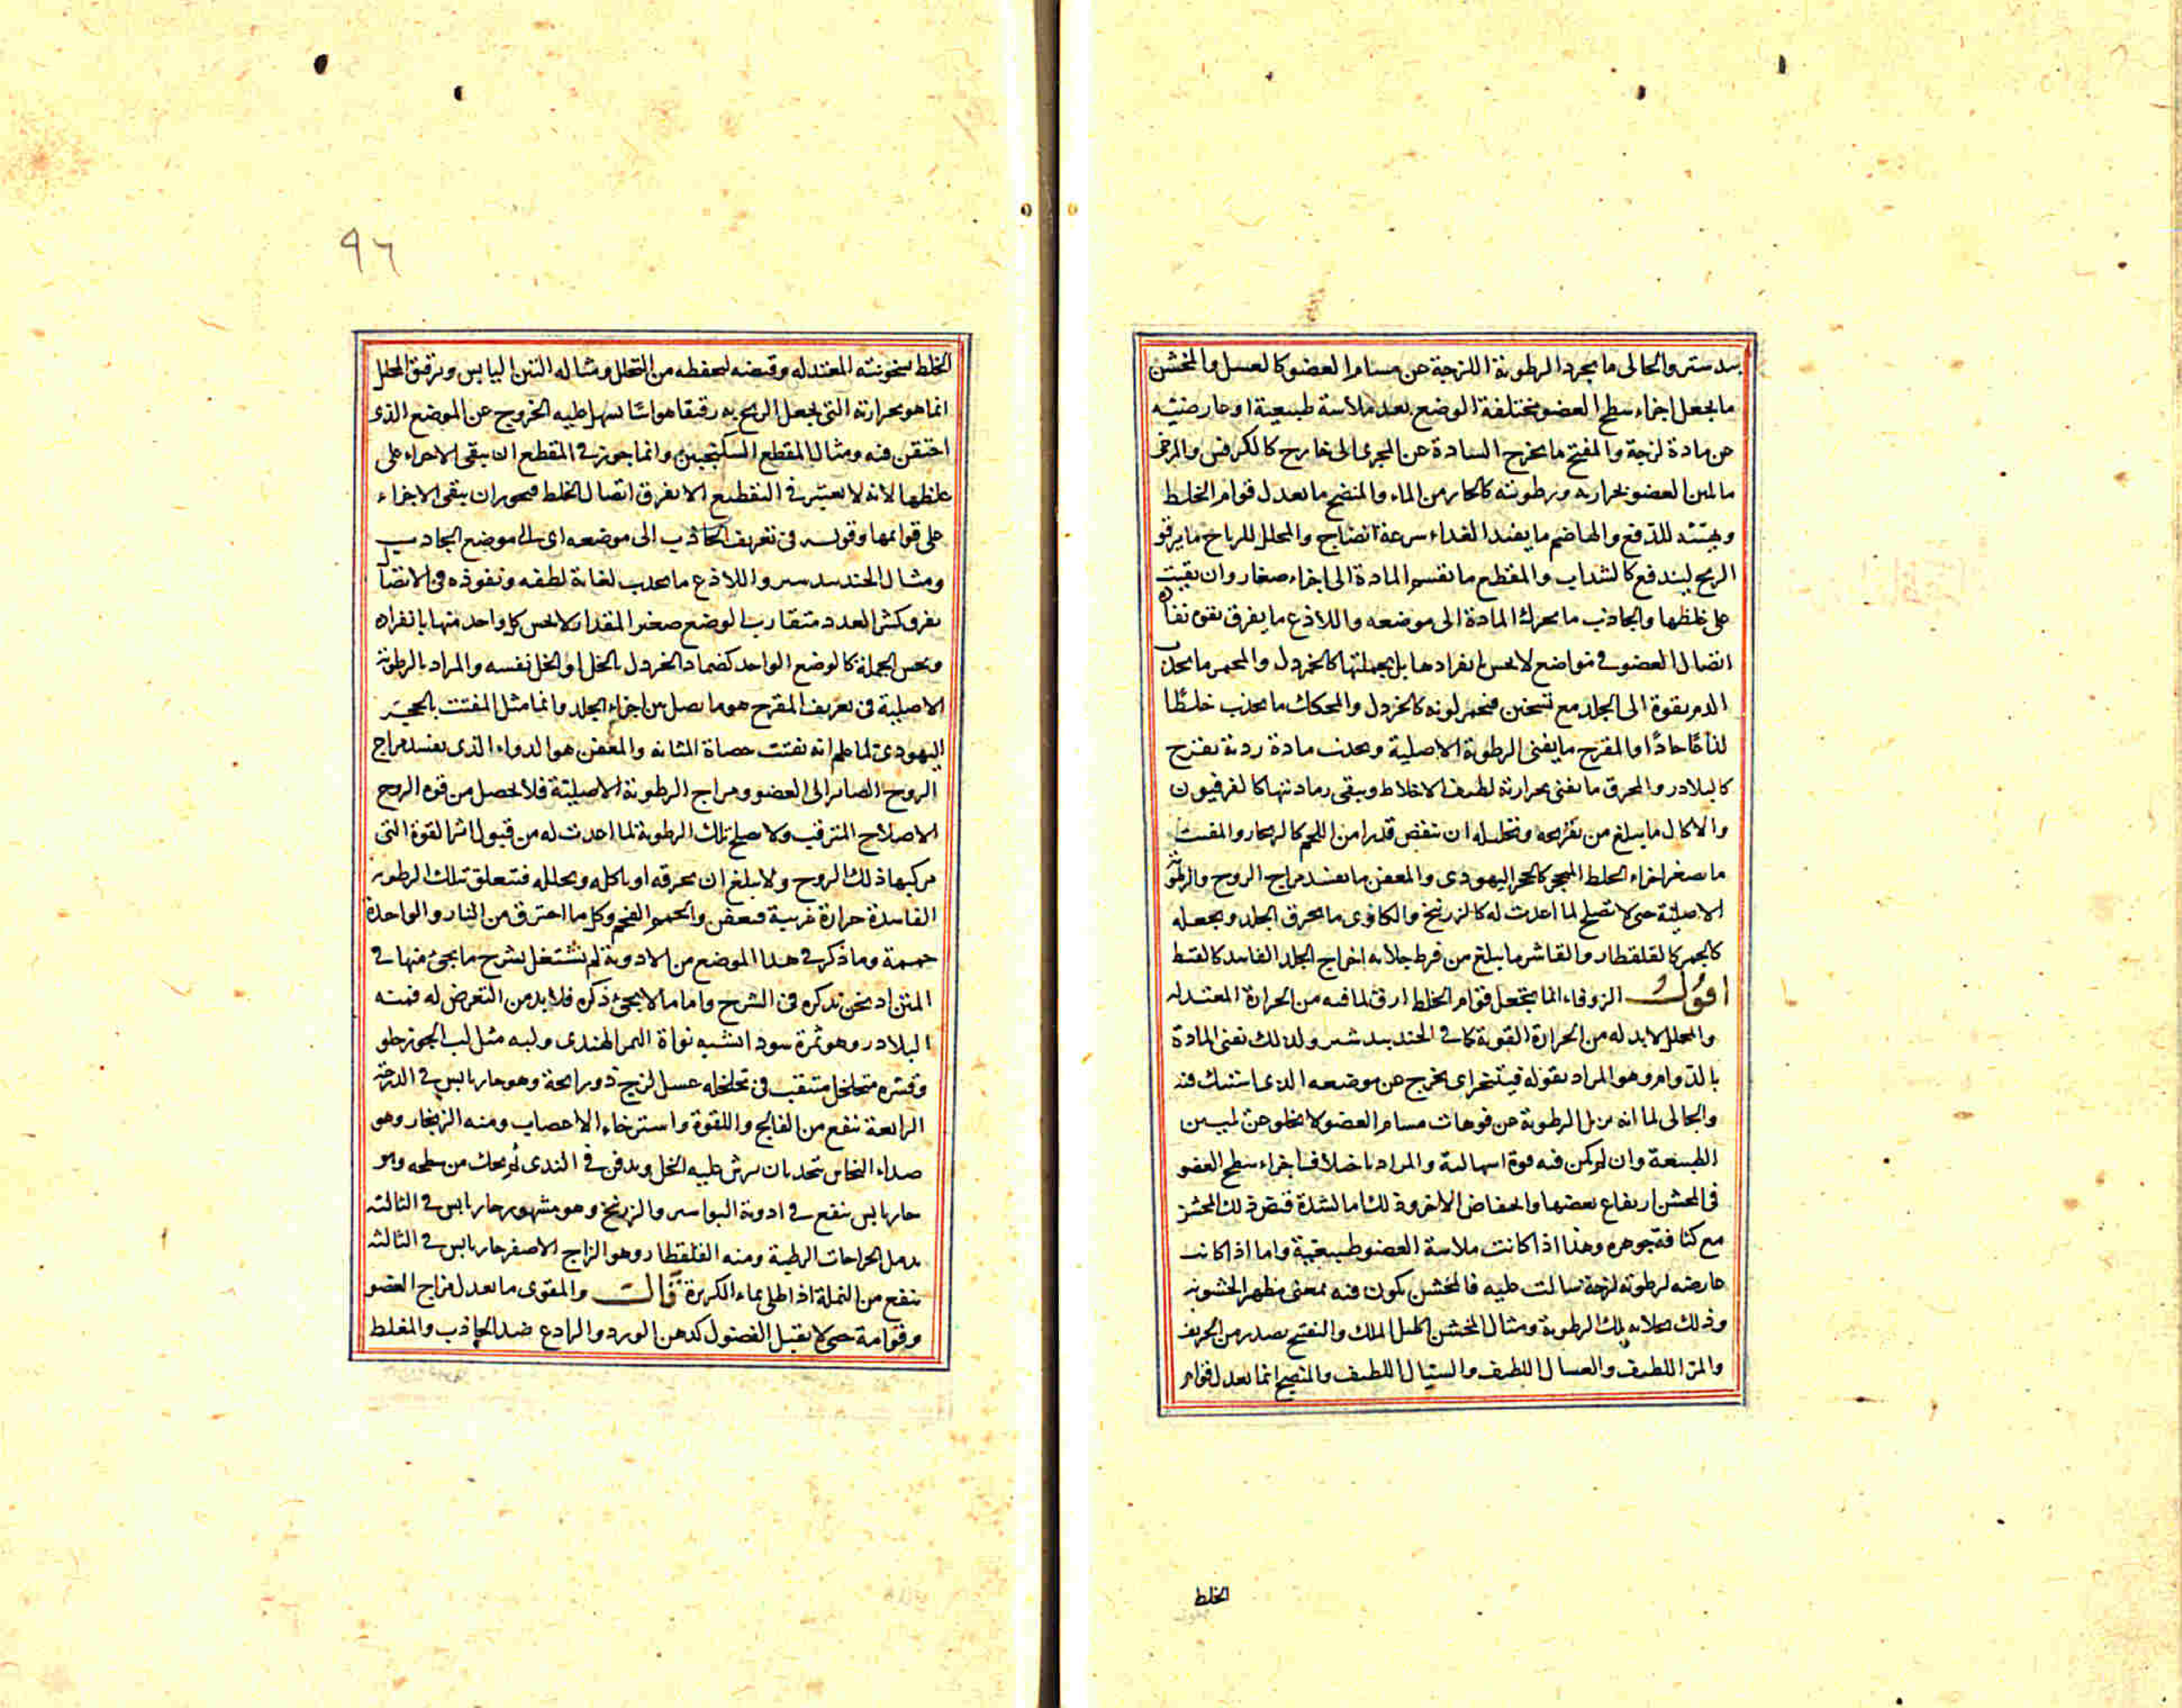 بيدستر والجالى ما يجرد الرطوبة اللزجة عن مسام العضو كالعسل والمخشن
ما يجعل اجزاء سطح العضو مختلفة الوضع بعد ملاسة طبيعية او عارضية
عن مادة لزجة والمفتح ما يخرج السادة عن المجرى الى خارج كالكرفس والمرخى
ما يلين العضو بحرارته ورطوبته كالحار من الماء والمنضج ما يعدل قوام الخلط
ويهيئه للدفع والهاضم ما يفيد الغداء سرعة انضاج والمحلل للرياح ما يرقق
الريح ليندفع كالسداب والمقطع ما يقسم المادة الى اجزاء صغار وان بقيت
على غلظها والجاذب ما يحرك المادة الى موضعه واللاذع ما يفرق بقوة نفاذه
اتصال العضو فى مواضع لا يحس بانفرادها بل بجملتها كالخردل والمحمر ما يجذب
الدم بقوة الى الجلد مع تسخين فيحمر لونه كالخردل والمحكك ما يجذب خلطًا
لذاعًا حادًا والمقرح ما يفنى الرطوبة الاصلية ويجذب مادة ردية يقرح
كالبلادر والمحرق ما يفنى بحرارته لطيف الاخلاط ويبقى رماديتها كالفرفيون
والاكال ما يبلغ من تقريحه وتحليله ان ينقص قدرا من اللحم كالزنجار والمفتت
ما يصغر اجزاء الخلط المتحجر كالحجر اليهودى والمعفن ما يفسد مزاج الروح والرطوبة
الاصلية حتى لا تصلح لما اعدت له كالزرنيخ والكاوى ما يحرق الجلد ويجعله
كالحمم كالقلقطار والقاشر ما يبلغ من فرط جلائه اخراج الجلد الفاسد كالقسط
اقول الزوفاء انما يجعل قوام الخلط ارق لما فيه من الحرارة المعتدله
والمحلل لا بد له من الحرارة القوية كما فى الجندبيدستر ولذلك تفنى المادة
بالدوام وهو المراد بقوله فيتبخر اى يخرج عن موضعه الذى اشتبك فيه
والجالى لما انه يزيل الرطوبة عن فوهات مسام العضو لا يخلو عن تليين
الطبيعة وان لم يكن فيه قوة اسهالية والمراد باختلاف اجزاء سطح العضو
فى المخشن ارتفاع بعضها وانخفاض الاخر وذلك اما لشدة قبض ذلك المخشن
مع كثافة جوهره وهذا اذا كانت ملاسة العضو طبيعية واما اذا كانت
عارضه لرطوبة لزجة سالت عليه فالمخشن يكون فيه بمعنى مظهر الخشونة
وذلك بجلائه تلك الرطوبة ومثال المخشن اكليل الملك والتفتيح يصدر من الحريف
والمر اللطيف والغسال اللطيف والسيال اللطيف والمنضج انما يعدل قوام
الخلط
٩٦
الخلط بسخونته المعتدله وقبضه ليحفظه من التحلل ومثاله التين اليابس وترقيق المحلل
انما هو بحرارته التى يجعل الريح به رقيقا هوائيا يسهل عليه الخروج عن الموضع الذى
احتقن فيه ومثال المقطع السكنجبين وانما جوز فى المقطع ان يبقى الاجزاء على
غلظها لانه لا يعتبر فى التقطيع الا تفرق اتصال الخلط فيجوز ان يبقى الاجزاء
على قوامها وقوله فى تعريف الجاذب الى موضعه اى الى موضع الجاذب
ومثاله الجندبيدستر واللاذع ما يجذب لغاية لطفه ونفوذه فى الاتصال
تفرق كثير العدد متقارب الوضع صغير المقدار لا يحس كل واحد منها بانفراده
ويحس الجملة كالوضع الواحد كضماد الخردل بالخل او الخل نفسه والمراد بالرطوبة
الاصلية فى تعريف المقرح هو ما يصل بين اجزاء الجلد وانما مثل المفتت بالحجر
اليهودى لما علم انه يفتت حصاة المثانه والمعفن هو الدواء الذى يفسد مزاج
الروح الصائر الى العضو ومزاج الرطوبة الاصلية فلا يحصل من قوة الروح
الاصلاح المترقب ولا يصلح تلك الرطوبة لما اعدت له من قبول اثر القوة التى
مركبها ذلك الروح ولا يبلغ ان يحرقه او ياكله ويحلله فتتعلق بتلك الرطوبة
الفاسدة حرارة غريبة فيعفن والحمم الفحم وكل ما احترق من النار والواحدة
حممة وما ذكر فى هذا الموضع من الادوية لم نشتغل بشرح ما يجئ منها فى
المتن اذ نحن نذكره فى الشرح واما ما لا يجئ ذكره فلا بد من التعرض له فمنه
البلادر وهو ثمرة سوداء تشبه نواة التمر الهندى ولبه مثل لب الجوز حلو
وقشره متخلخل متثقب فى تخلخله عسل لزج ذو رائحة وهو حار يابس فى الدرجة
الرابعة ينفع من الفالج واللقوة واسترخاء الاعصاب ومنه الزنجار وهو
صداء النحاس يتخذ بان يرش عليه الخل ويدفن فى الندى ثم يحك من سطحه وهو
حار يابس ينفع فى ادوية البواسير والزرنيخ وهو مشهور حار يابس فى الثالثة
يدمل الجراحات الرطبة ومنه القلقطار وهو الزاج الاصفر حار يابس فى الثالثة
ينفع من النملة اذا طلى بماء الكزبرة قال والمقوى ما يعدل مزاج العضو
وقوامه حتى لا يقبل الفضول كدهن الورد والرادع ضد الجاذب والمغلظ